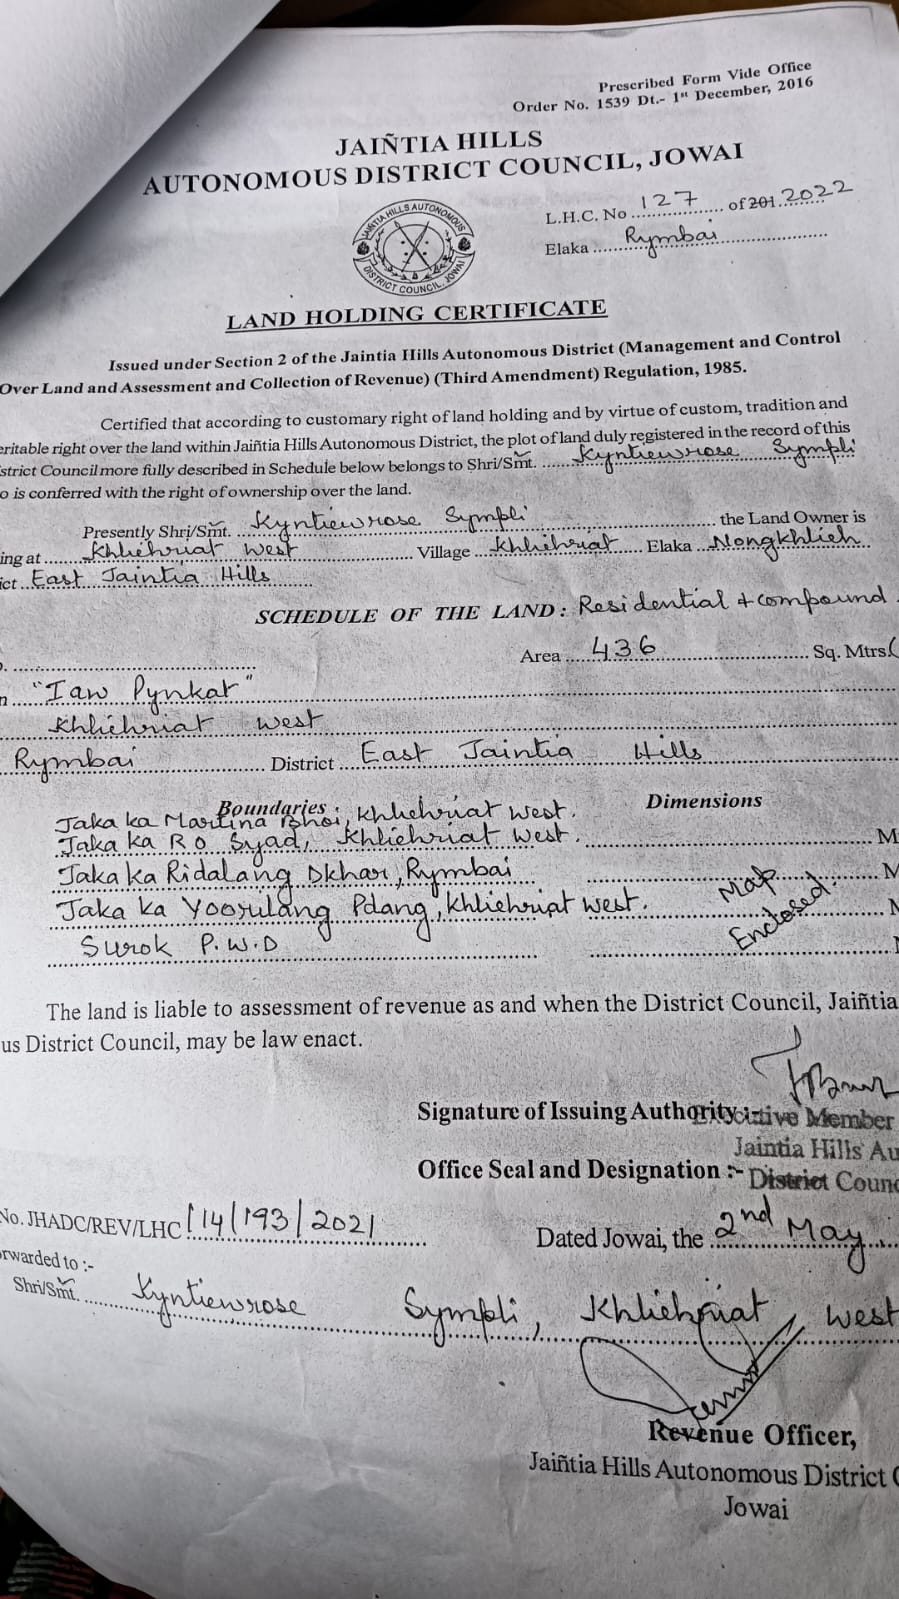 Prescribed Form Vide Office
Order No. 1539 Dt.- 1st December, 2016
JAIÑTIA HILLS
AUTONOMOUS DISTRICT COUNCIL, JOWAI
JAINTIA HILLS AUTONOMOUS
DISTRICT COUNCIL, JOWAI
L.H.C. No 127 of 201 2022
Elaka Rymbai
LAND HOLDING CERTIFICATE
Issued under Section 2 of the Jaintia Hills Autonomous District (Management and Control
Over Land and Assessment and Collection of Revenue) (Third Amendment) Regulation, 1985.
Certified that according to customary right of land holding and by virtue of custom, tradition and
eritable right over the land within Jaiñtia Hills Autonomous District, the plot of land duly registered in the record of this
strict Council more fully described in Schedule below belongs to Shri/Smt. Kyntiewrose Sympli
o is conferred with the right of ownership over the land.
Presently Shri/Smt. Kyntiewrose Sympli the Land Owner is
ing at Khliehriat West Village Khliehriat Elaka Nongkhlieh
ict East Jaintia Hills
SCHEDULE OF THE LAND : Residential + compound.
Area 436 Sq. Mtrs.(
n "Iaw Pynkat"
Khliehriat west
Rymbai District East Jaintia Hills
Boundaries : Dimensions
Jaka ka Martina Bhoi, Khliehriat West.
Jaka ka R.O Syad, Khliehriat West. M
Jaka ka Ridalang Dkhar, Rymbai M
Jaka ka Yoosulang Pdang, Khliehriat West. Map
Surok P.W.D Enclosed.
The land is liable to assessment of revenue as and when the District Council, Jaiñtia
us District Council, may be law enact.
Signature of Issuing Authority :- Executive Member
Jaintia Hills Au
Office Seal and Designation :- District Counc
No. JHADC/REV/LHC/14/193/2021 Dated Jowai, the 2nd May,
rwarded to :-
Shri/Smt. Kyntiewrose Sympli, Khliehriat, West
Revenue Officer,
Jaiñtia Hills Autonomous District C
Jowai